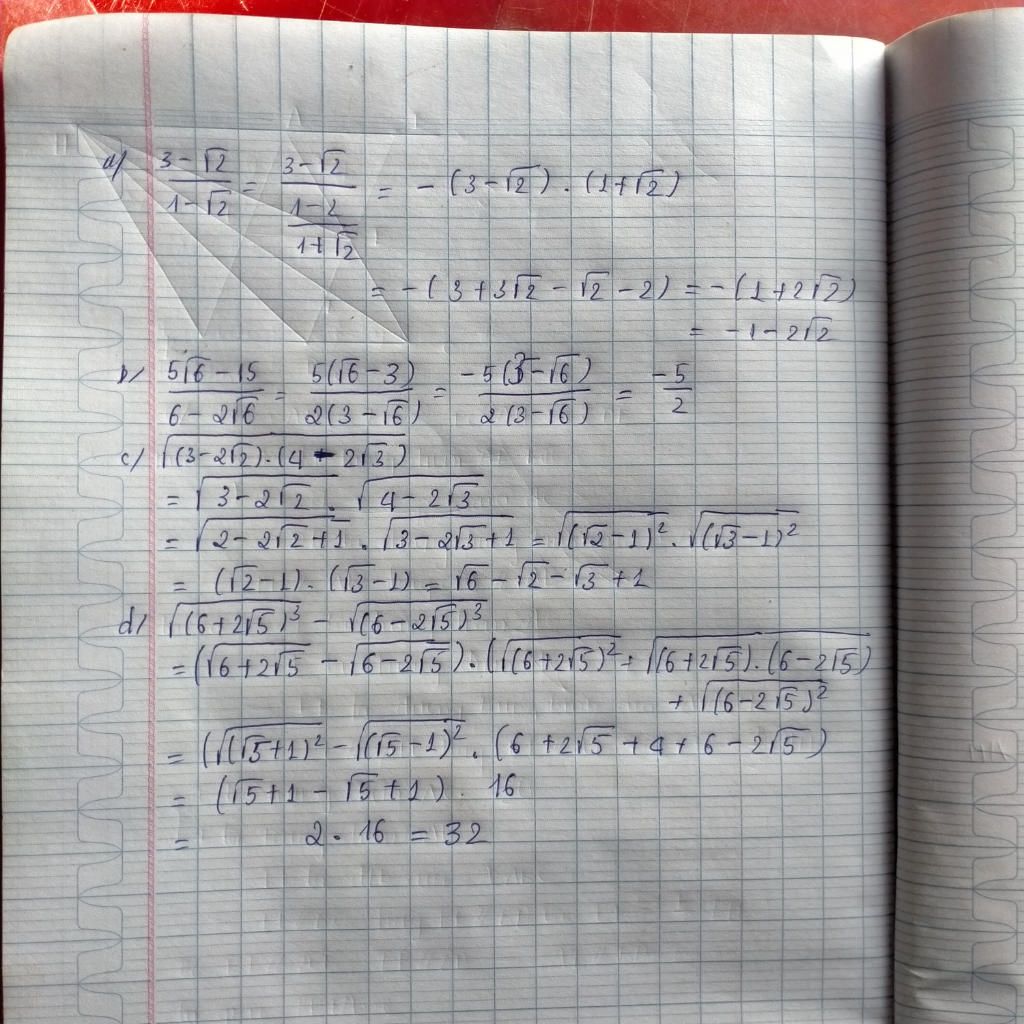 a/ (3-√2)/(1-√2) = (3-√2)/((1-2)/(1+√2)) = -(3-√2).(1+√2)
= -(3+3√2-√2-2) = -(1+2√2)
= -1-2√2
b/ (5√6-15)/(6-2√6) = 5(√6-3)/2(3-√6) = -5(3-√6)/2(3-√6) = -5/2
c/ √((3-2√2).(4-2√3))
= √(3-2√2) . √(4-2√3)
= √(2-2√2+1) . √(3-2√3+1) = √((√2-1)²) . √((√3-1)²)
= (√2-1).(√3-1) = √6-√2-√3+1
d/ √((6+2√5)³) - √((6-2√5)³)
= (√(6+2√5) - √(6-2√5)).(√((6+2√5)²) + √((6+2√5).(6-2√5))
+ √((6-2√5)²)
= (√((√5+1)²) - √((√5-1)²) . (6+2√5+4+6-2√5)
= (√5+1-√5+1) . 16
= 2.16 = 32